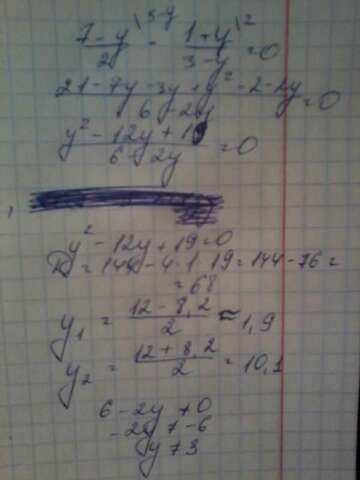 7-y/2 - 1+y/3-y = 0
21-7y-3y+y²-2-2y/6-2y = 0
y²-12y+19/6-2y = 0
y²-12y+19=0
D=144-4·1·19=144-76=
=68
y₁ = 12-8,2/2 ≈ 1,9
y₂ = 12+8,2/2 = 10,1
6-2y ≠ 0
-2y ≠ -6
y ≠ 3